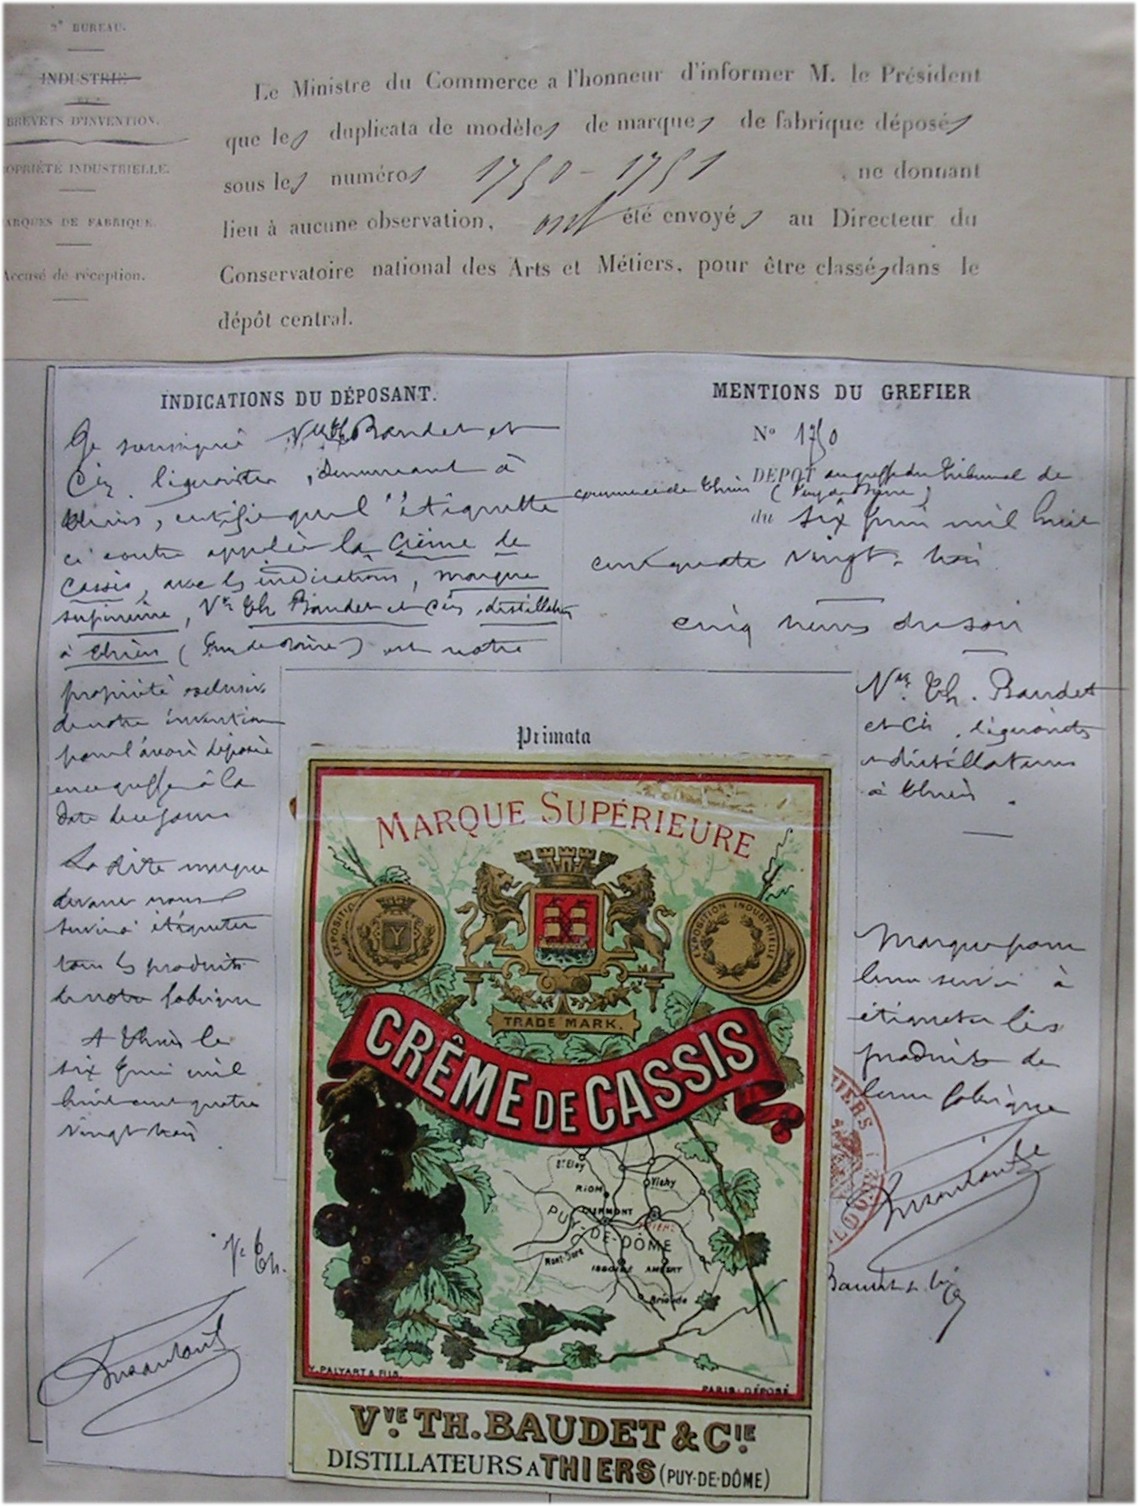 2e BUREAU.
INDUSTRIE
ET
BREVETS D'INVENTION.
OPRIÉTÉ INDUSTRIELLE.
ARQUES DE FABRIQUE.
Accusé de réception.
Le Ministre du Commerce a l'honneur d'informer M. le Président
que les duplicata de modèles de marques de fabrique déposés
sous les numéros 1750 - 1751, ne donnant
lieu à aucune observation, ont été envoyés au Directeur du
Conservatoire national des Arts et Métiers, pour être classés dans le
dépôt central.
INDICATIONS DU DÉPOSANT.
Je soussigné Vve Th Baudet et
Cie, liquoristes, demeurant à
Thiers, certifie que l'étiquette
ci contre appelée la Crème de
Cassis, avec les indications, marque
supérieure, Vve Th Baudet et Cie, distillateurs
à Thiers (Puy de Dôme) est notre
propriété exclusive
de notre invention
pour l'avoir déposée
en ce greffe à la
date de ce jour
La dite marque
devant nous
servir à étiqueter
tous les produits
de notre fabrique
A Thiers le
six Juin mil
huit cent quatre
vingt trois
Ve Th.
Baudet & Cie
MENTIONS DU GREFIER
No 1750
DEPOT au greffe du Tribunal de
commerce de Thiers (Puy de Dôme)
du six Juin mil huit
cent quatre vingt-trois
cinq heures du soir
Vve Th. Baudet
et Cie, liquoristes
distillateurs
à Thiers.
Marque pour
leur servir à
étiqueter les
produits de
leur fabrique
Primata
MARQUE SUPÉRIEURE
EXPOSITIO
EXPOSITION INDUSTRIELLE
TRADE MARK.
CRÊME DE CASSIS
St Eloy
RIOM
Vichy
CLERMONT
THIERS
PUY-DE-DÔME
Mont-Dore
ISSOIRE
AMBERT
Brioude
V. PALYART & FILS.
PARIS-DÉPOSÉ
VVE. TH. BAUDET & CIE.
DISTILLATEURS A THIERS (PUY-DE-DÔME)